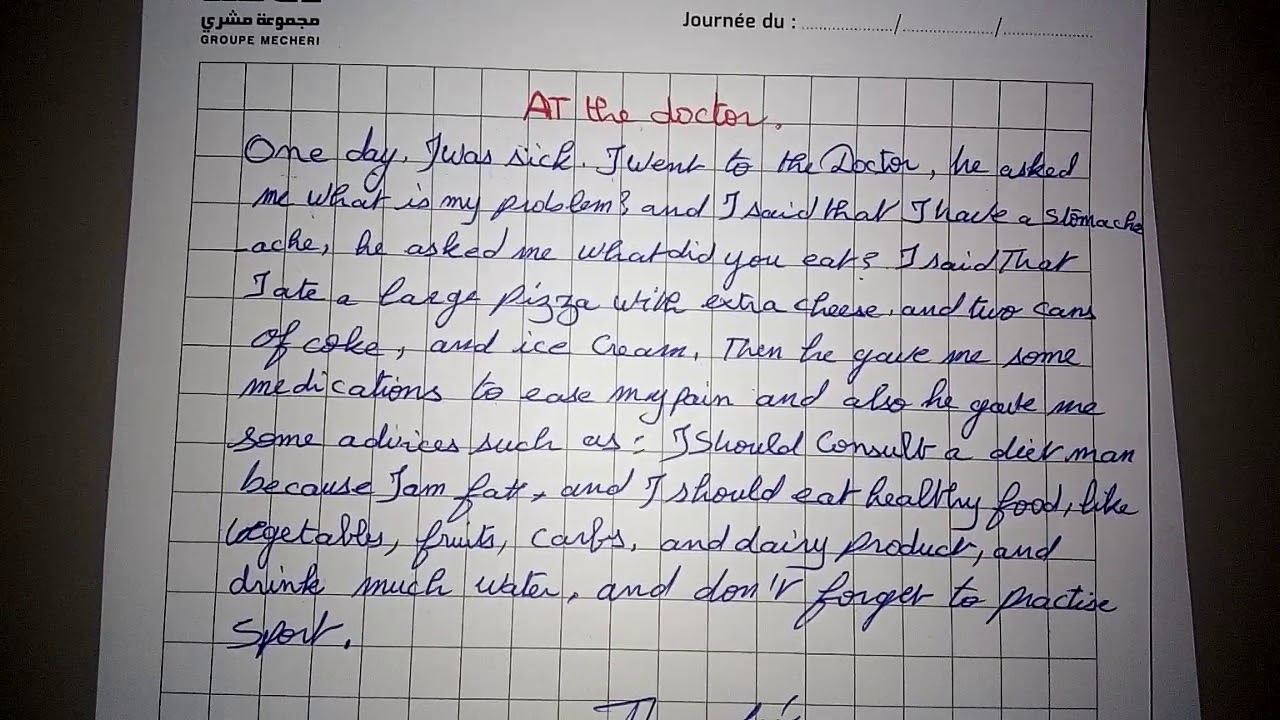 مجموعة مشري
GROUPE MECHERI
Journée du : ..................../..................../....................
AT the doctor.
One day, I was sick. I went to the Doctor, he asked
me what is my problem? and I said that I have a stomache
ache, he asked me what did you eat? I said That
I ate a large pizza with extra cheese, and two cans
of coke, and ice Cream. Then he gave me some
medications to ease my pain and also he gave me
some advices such as : I Should Consult a diet man
because I am fatt, and I should eat healthy food, like
vegetables, fruits, carbs, and dairy product, and
drink much water, and don't forget to practise
Sport.